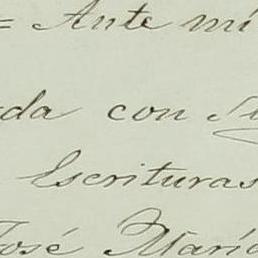 = Ante mí
da con
Escrituras
José María